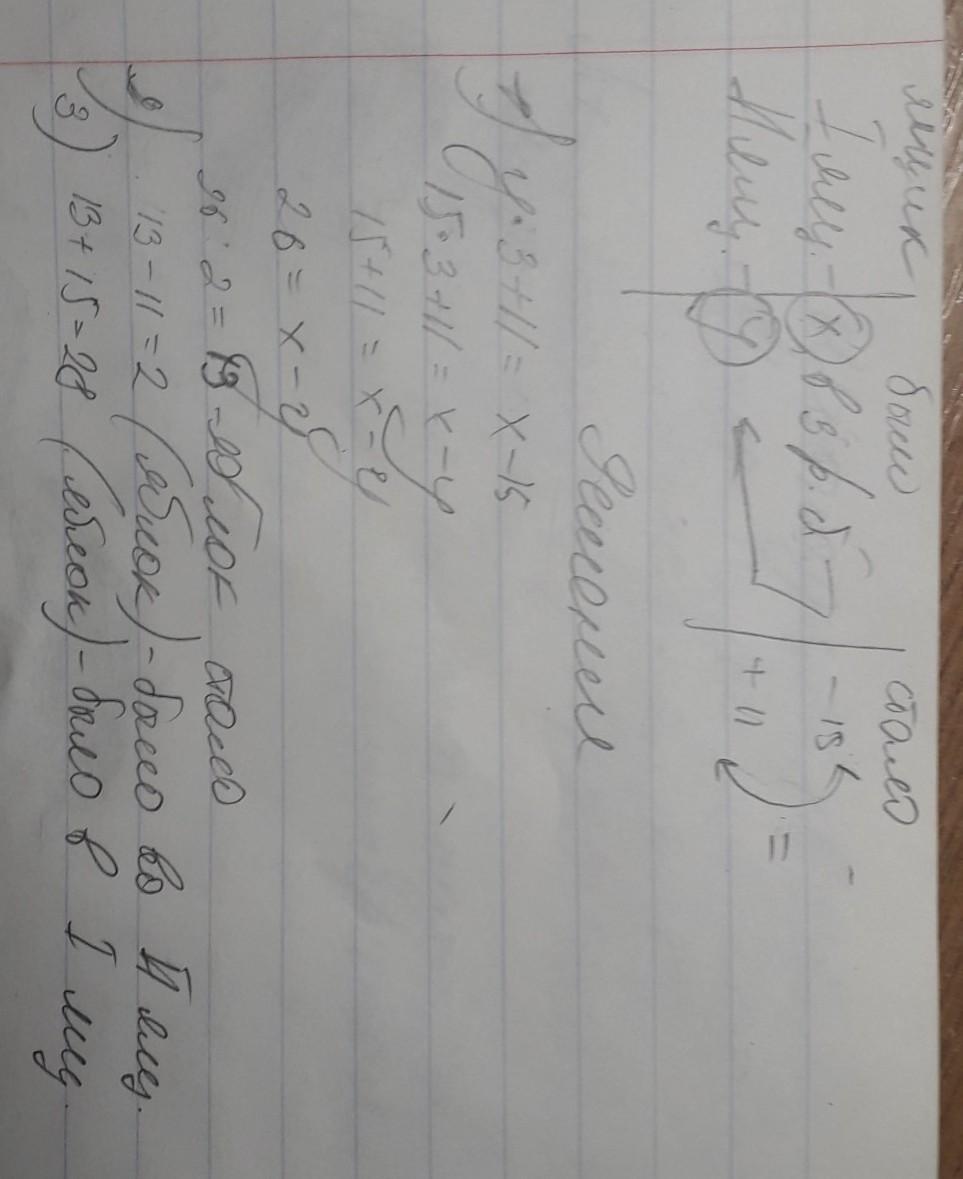 ящик было стало
I ящ. - x, в 3 р. б - 15
II ящ. - y + 11 =
Решение
1) y · 3 + 11 = x - 15
15 · 3 + 11 = x - y
15 + 11 = x - y
26 = x - y
26 : 2 = 13 - яблок стало
2) 13 - 11 = 2 (яблок) - было во II ящ.
3) 13 + 15 = 28 (яблок) - было в I ящ.